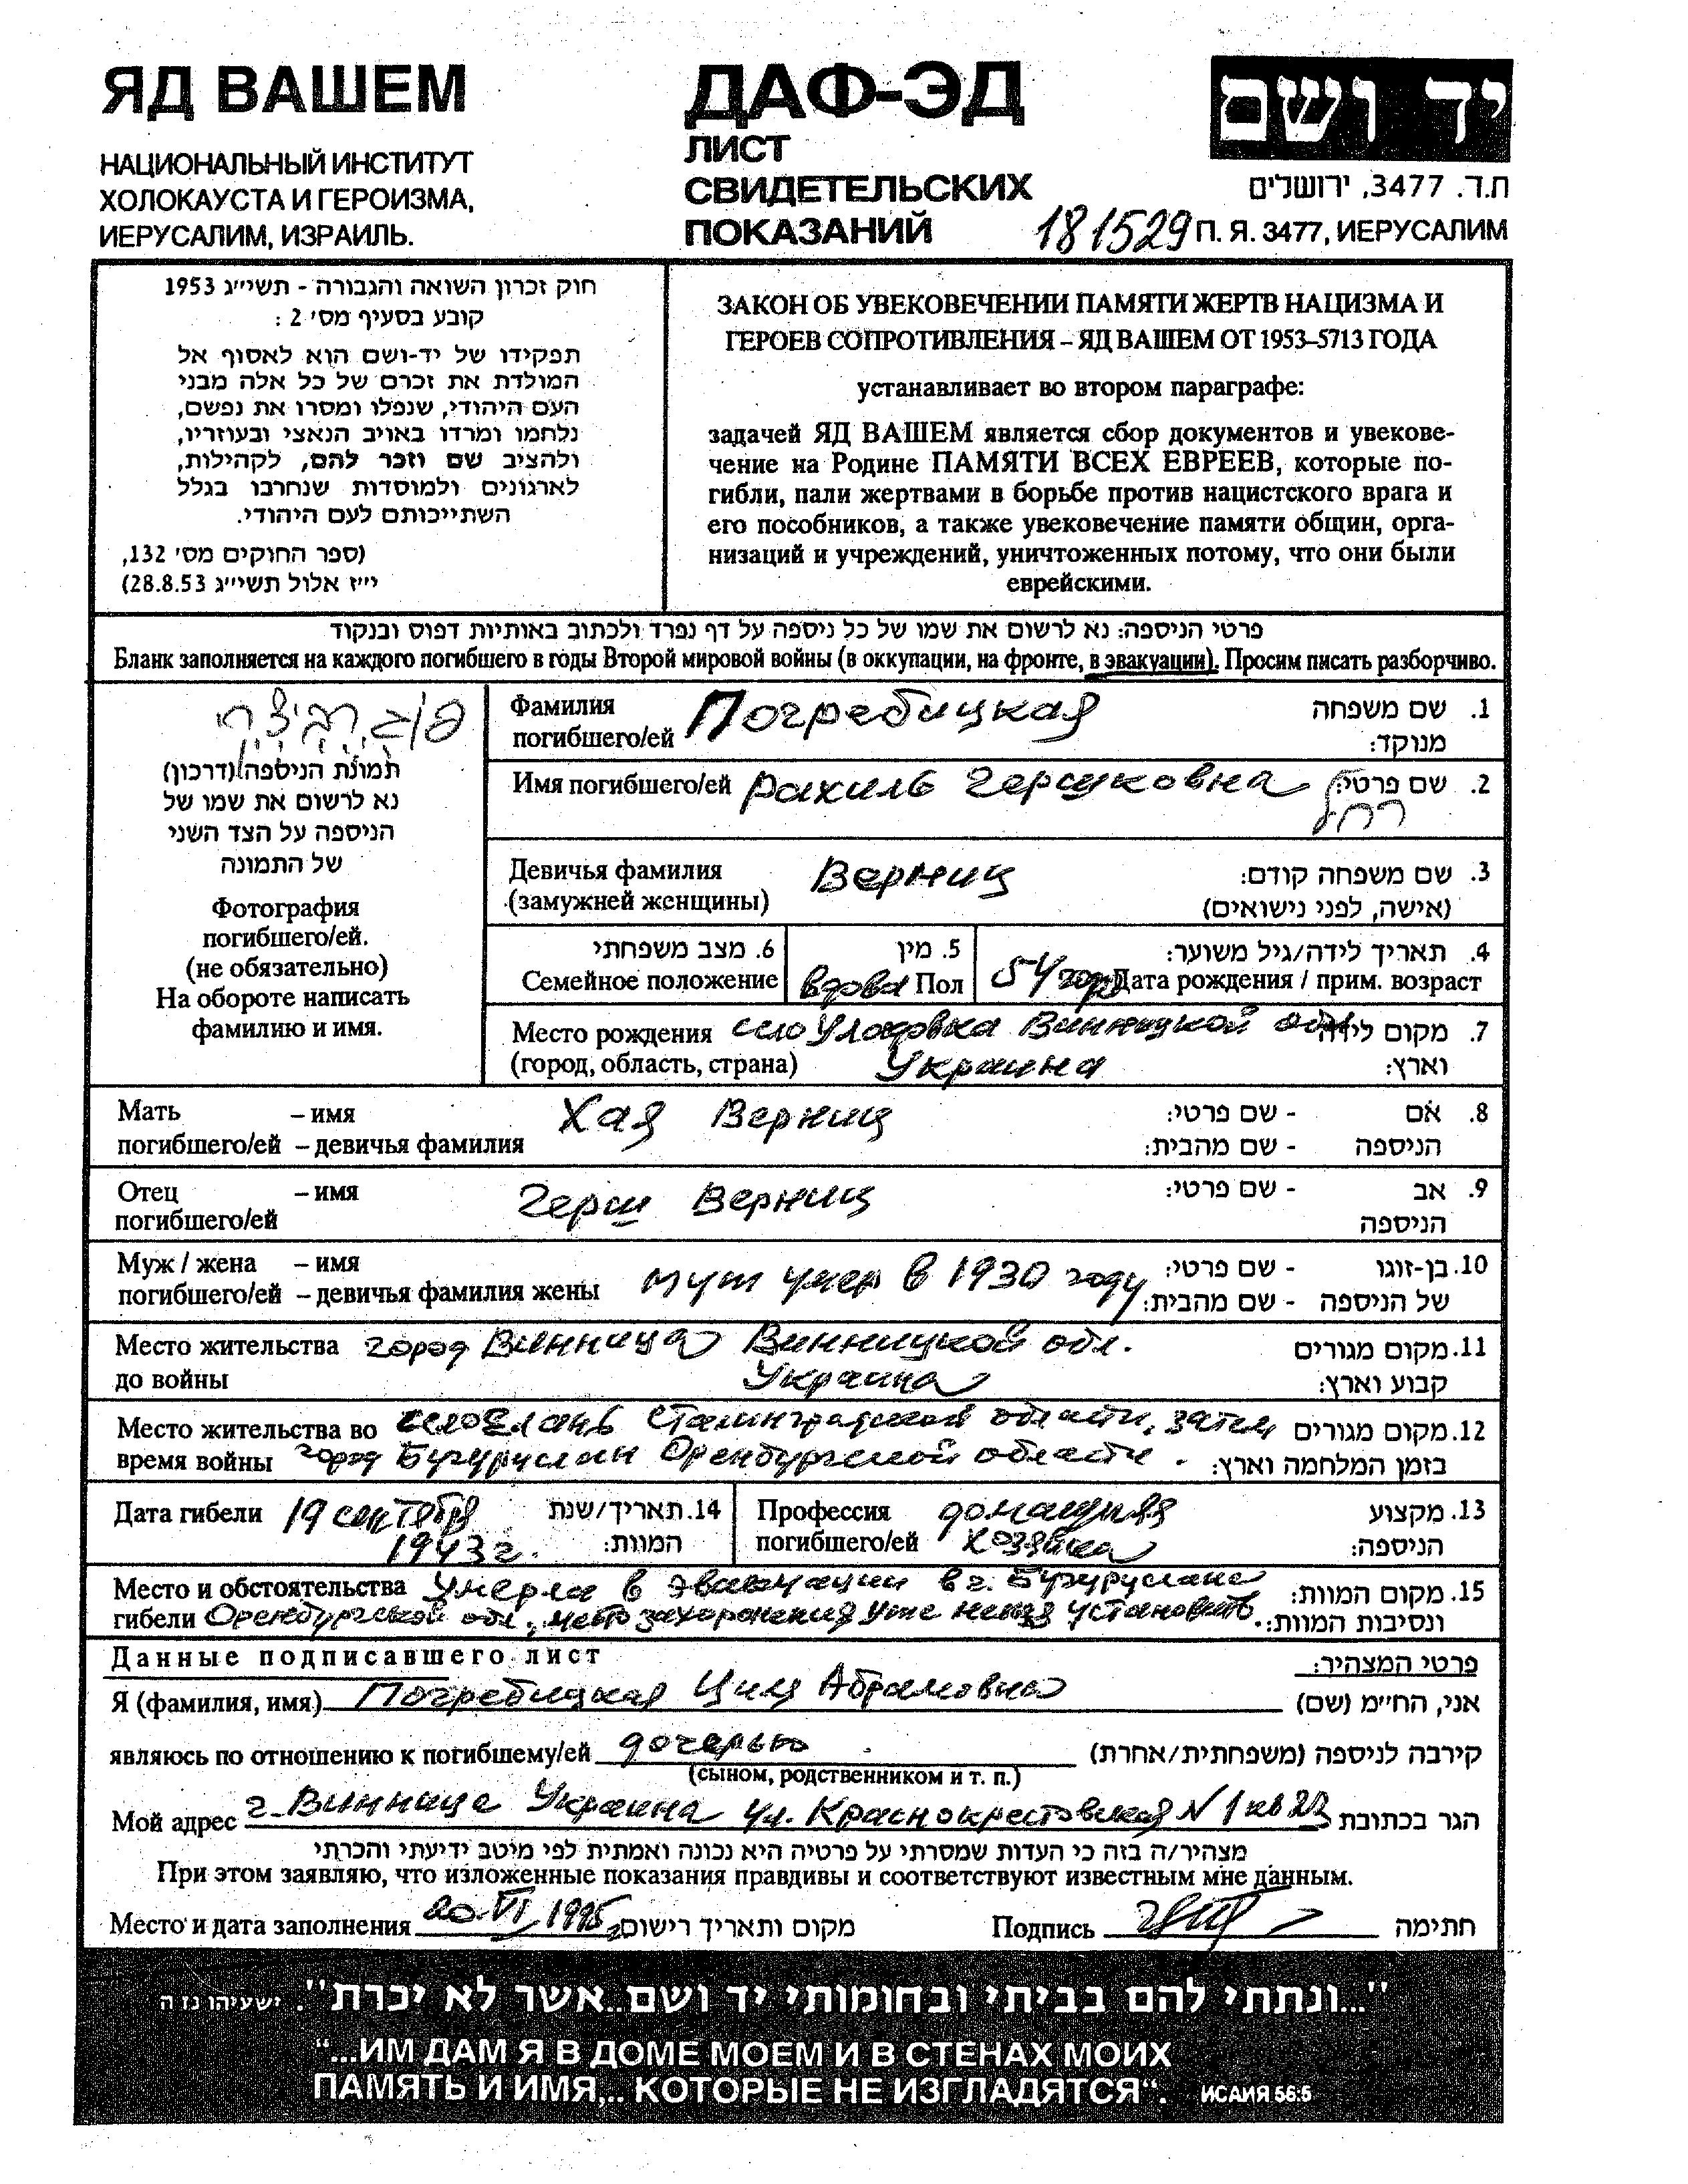 ЯД ВАШЕМ
НАЦИОНАЛЬНЫЙ ИНСТИТУТ
ХОЛОКАУСТА И ГЕРОИЗМА,
ИЕРУСАЛИМ, ИЗРАИЛЬ.
ДАФ-ЭД
ЛИСТ
СВИДЕТЕЛЬСКИХ
ПОКАЗАНИЙ
181529
יד ושם
ת.ד. 3477, ירושלים
П. Я. 3477, ИЕРУСАЛИМ
חוק זכרון השואה והגבורה - תשי״ג 1953
קובע בסעיף מס׳ 2 :
תפקידו של יד-ושם הוא לאסוף אל
המולדת את זכרם של כל אלה מבני
העם היהודי, שנפלו ומסרו את נפשם,
נלחמו ומרדו באויב הנאצי ובעוזריו,
ולהציב שם וזכר להם, לקהילות,
לארגונים ולמוסדות שנחרבו בגלל
השתייכותם לעם היהודי.
(ספר החוקים מס׳ 132,
י״ז אלול תשי״ג 28.8.53)
ЗАКОН ОБ УВЕКОВЕЧЕНИИ ПАМЯТИ ЖЕРТВ НАЦИЗМА И
ГЕРОЕВ СОПРОТИВЛЕНИЯ – ЯД ВАШЕМ ОТ 1953–5713 ГОДА
устанавливает во втором параграфе:
задачей ЯД ВАШЕМ является сбор документов и увекове-
чение на Родине ПАМЯТИ ВСЕХ ЕВРЕЕВ, которые по-
гибли, пали жертвами в борьбе против нацистского врага и
его пособников, а также увековечение памяти общин, орга-
низаций и учреждений, уничтоженных потому, что они были
еврейскими.
פרטי הניספה: נא לרשום את שמו של כל ניספה על דף נפרד ולכתוב באותיות דפוס ובנקוד
Бланк заполняется на каждого погибшего в годы Второй мировой войны (в оккупации, на фронте, в эвакуации). Просим писать разборчиво.
תמונת הניספה (דרכון)
נא לרשום את שמו של
הניספה על הצד השני
של התמונה
Фотография
погибшего/ей.
(не обязательно)
На обороте написать
фамилию и имя.
Фамилия Погребицкая 1. שם משפחה
погибшего/ей מנוקד:
Имя погибшего/ей Рахиль Гершковна 2. שם פרטי:
רחל
Девичья фамилия Верниц 3. שם משפחה קודם:
(замужней женщины) (אישה, לפני נישואים)
6. מצב משפחתי 5. מין 4. תאריך לידה/גיל משוער:
Семейное положение вдова Пол 54 года Дата рождения / прим. возраст
Место рождения село Уладовка Винницкой обл 7. מקום לידה
(город, область, страна) Украина וארץ:
Мать – имя Хая Верниц 8. אם - שם פרטי:
погибшего/ей – девичья фамилия הניספה - שם מהבית:
Отец – имя Герш Верниц 9. אב - שם פרטי:
погибшего/ей הניספה
Муж / жена – имя муж умер в 1930 году 10. בן-זוגו - שם פרטי:
погибшего/ей – девичья фамилия жены של הניספה - שם מהבית:
Место жительства город Винница Винницкой обл. 11. מקום מגורים
до войны Украина קבוע וארץ:
Место жительства во село Елань Сталинградской области, затем 12. מקום מגורים
время войны город Бугуруслан Оренбургской области. בזמן המלחמה וארץ:
Дата гибели 19 сентября 14. תאריך/שנת Профессия домашняя 13. מקצוע
1943 г. המוות: погибшего/ей хозяйка הניספה:
Место и обстоятельства Умерла в эвакуации в г. Бугуруслане 15. מקום המוות:
гибели Оренбургской обл., место захоронения уже нельзя установить. ונסיבות המוות:
Данные подписавшего лист פרטי המצהיר:
Я (фамилия, имя) Погребицкая Циля Абрамовна אני, החי״מ (שם)
являюсь по отношению к погибшему/ей дочерью קירבה לניספה (משפחתית/אחרת)
(сыном, родственником и т. п.)
Мой адрес г. Винница Украина ул. Краснокрестовская N 1 кв 23 הגר בכתובת
מצהיר/ה בזה כי העדות שמסרתי על פרטיה היא נכונה ואמתית לפי מיטב ידיעתי והכרתי
При этом заявляю, что изложенные показания правдивы и соответствуют известным мне данным.
Место и дата заполнения 20. VI 1995 г מקום ותאריך רישום Подпись חתימה
"...ונתתי להם בביתי ובחומותי יד ושם..אשר לא יכרת". ישעיהו נו ה
“...ИМ ДАМ Я В ДОМЕ МОЕМ И В СТЕНАХ МОИХ
ПАМЯТЬ И ИМЯ,.. КОТОРЫЕ НЕ ИЗГЛАДЯТСЯ“. ИСАИЯ 56:5